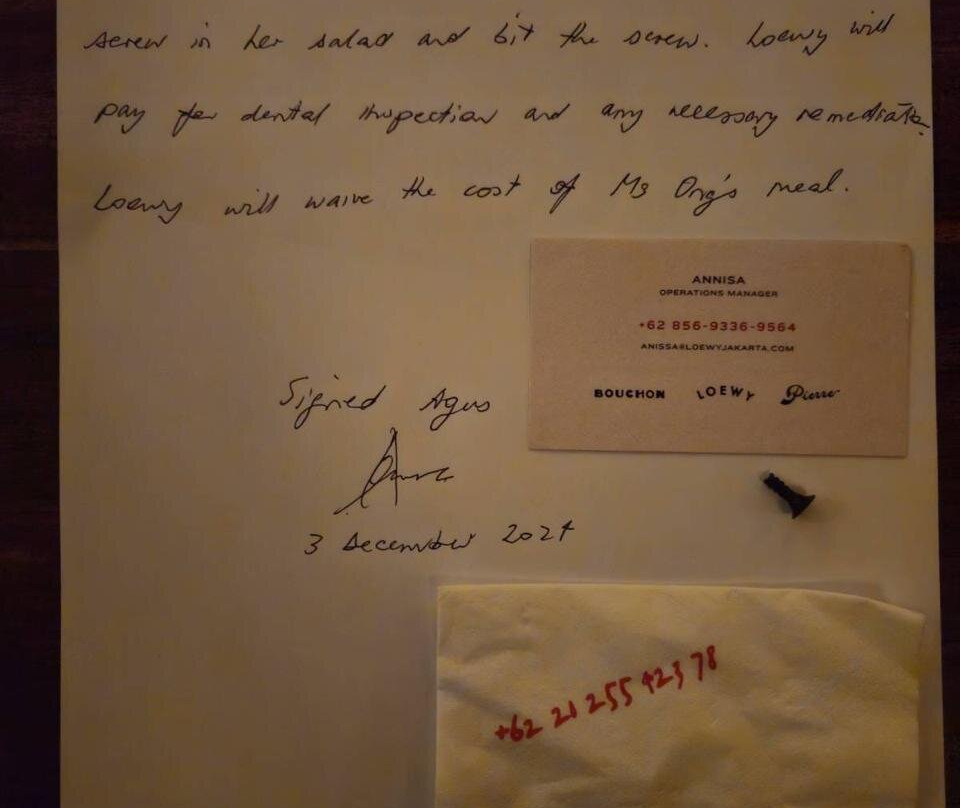 screw in her salad and bit the screw. Loewy will
pay for dental inspection and any necessary remediation.
Loewy will waive the cost of Ms Ong's meal.
ANNISA
OPERATIONS MANAGER
+62 856-9336-9564
ANISSA@LOEWYJAKARTA.COM
BOUCHON LOEWY Pierre
Signed Agus
3 December 2024
+62 21 255 423 78